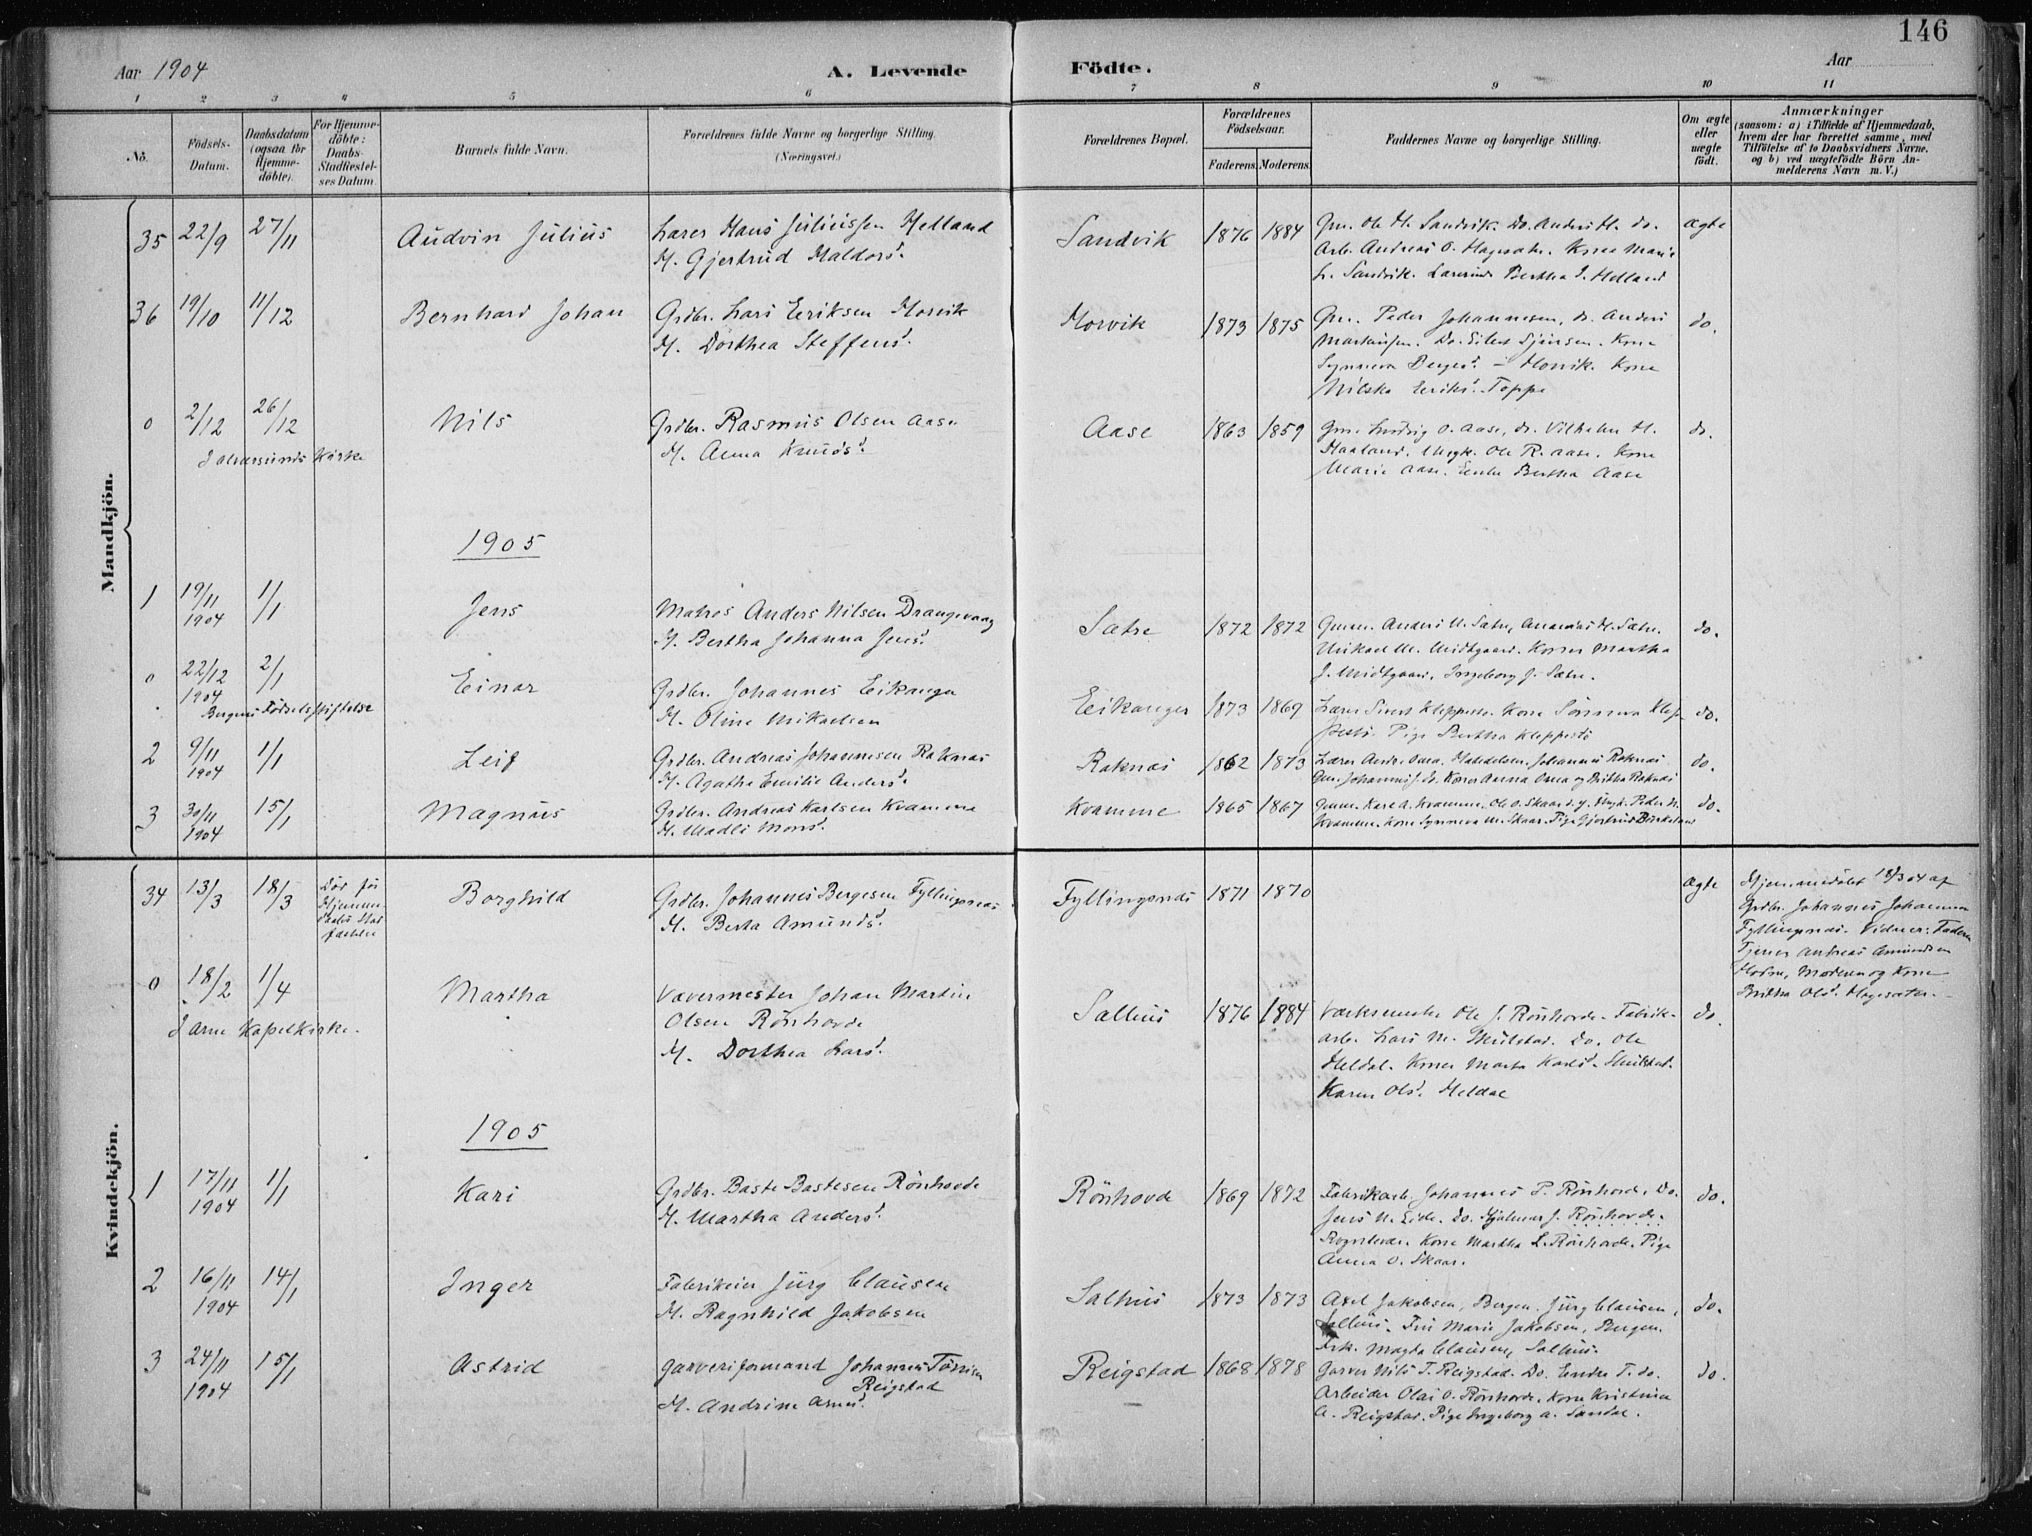 146
Aar 1904
A. Levende
Födte.
Aar
1 2 3 4 5 6 7 8 9 10 11
No.
Födsels-Datum.
Daabsdatum (ogsaa for Hjemmedöbte).
For Hjemmedöbte: Daabs-Stadfæstelses Datum.
Barnets fulde Navn.
Forældrenes fulde Navne og borgerlige Stilling. (Næringsvei.)
Forældrenes Bopæl.
Forældrenes Födselsaar.
Faderens. Moderens.
Faddernes Navne og borgerlige Stilling.
Om ægte eller uægte födt.
Anmærkninger
(saasom: a) i Tilfælde af Hjemmedaab, hvem der har forrettet samme, med Tilföielse af to Daabsvidners Navne, og b) ved uægtefödte Börn Anmelderens Navn m. V.)
Mandkjön.
35 22/9 27/11 Audvin Julius
Lærer Hans Juliussen Helland
H. Gjertrud Haldors.
Sandvik 1876 1884
Gm. Ole H. Sandvik. Do. Anders H. do.
Arb. Andreas O. Hagesæter. Kone Marie
L. Sandvik. Bertha J. Helland
Ægte
36 19/10 11/12 Bernhard Johan
Grdbr. Lars Eriksen Horvik
H. Dorthea Steffens.
Horvik 1873 1875
Gm. Peder Johannesen, do. Anders
Do. Eilert Kone
Synneva Horvik. Kone
Nilska Eriks. Toppe
do.
0 2/12 26/12 Nils
I Alversunds Kirke
Grdbr. Rasmus Olsen Aase
H. Anna Knuds.
Aase 1863 1859
Gm. Ludvig O. Aase, do. Vilhelm H.
Haaland. Ungk. Ole R. Aase. Kone
Marie Aase. Enke Bertha Aase
do.
1905
1 19/11 1904 1/1 Jens
Matros Anders Nilsen Drangevaag
H. Bertha Johanna Jens.
Sætre 1872 1872
Gmm. Anders N. Sætre, H. Sætre.
Mikael M. Midtgaard. Koner Martha
J. Midtgaard, Ingeborg J. Sætre.
do.
0 22/12 1904 2/1 Einar
Bergens Fødselsstiftelse
Grdbr. Johannes Eikanger
H. Oline Mikaelsen
Eikanger 1873 1869
Lærer Sivert Kleppestø. Kone Synneva Klep-
pestø. Pige Bertha Kleppestø
do.
2 9/11 1904 1/1 Leif
Grdbr. Andreas Johannesen Raknæs
H. Agathe Emilie Anders.
Raknæs 1862 1873
Lærer Andr. Oma. Johannes Raknæs
Gm. Johannes J. do. Koner Anna Oma og Britha Raknæs
do.
3 30/11 1904 15/1 Magnus
Grdbr. Andreas Karlsen Kvamme
H. Madli Mons.
Kvamme 1865 1867
Gmm. Karl A. Kvamme, Ole O. Skaar d.y. Ungk. Peder N.
Kvamme. Kone Synneva M. Skaar. Pige Gjertrud Birkeland
do.
Kvindekjön.
34 13/3 18/3
Død før
Hjemme-
daabs Stad
fæstelse
Borghild
Grdbr. Johannes Bergesen Fyllingsnæs
H. Berta Amunds.
Fyllingsnæs 1871 1870
Ægte
Hjemmedøbt 18/3 04 af
Grdbr. Johannes Johannesen
Fyllingsnæs. Vidner: Faderen
Tjener Andreas Amundsen
Hodne, Moderen og Kone
Britha Ols. Hagesæter.
0 18/2 1/4 Martha
I Arne Kapelkirke.
Vævermester Johan Martin
Olsen Rönhovde
H. Dorthea Lars.
Salhus 1876 1884
Værksmester Ole J. Rönhovde. Fabrik-
arb. Lars M. Skulstad. Do. Ole
Heldal. Koner Marta Karls. Skulstad.
Karen Ols. Heldal
do.
1905
1 17/11 1904 1/1 Kari
Grdbr. Baste Bastesen Rönhovde
H. Martha Anders.
Rönhovde 1869 1872
Fabrikarb. Johannes P. Rönhovde, Do.
Jens N. Eide. Do. Hjalmar J. Rönhovde.
Kone Martha L. Rönhovde. Pige
Anna O. Skaar.
do.
2 16/11 1904 14/1 Inger
Fabrikeier Jürg Clausen
H. Ragnhild Jakobsen
Salhus 1873 1873
Axel Jakobsen, Bergen. Jürg Clausen,
Salhus. Fru Marie Jakobsen, Bergen.
Frk. Magda Clausen, Salhus.
do.
3 24/11 1904 15/1 Astrid
Garveriformand Johannes
Reigstad
H. Andrine Arnes.
Reigstad 1868 1878
Garver Nils T. Reigstad. Do. Endre T. do.
Arbeider Olai O. Rönhovde, Kone Kristina
A. Reigstad. Pige Ingeborg A. Sandal.
do.